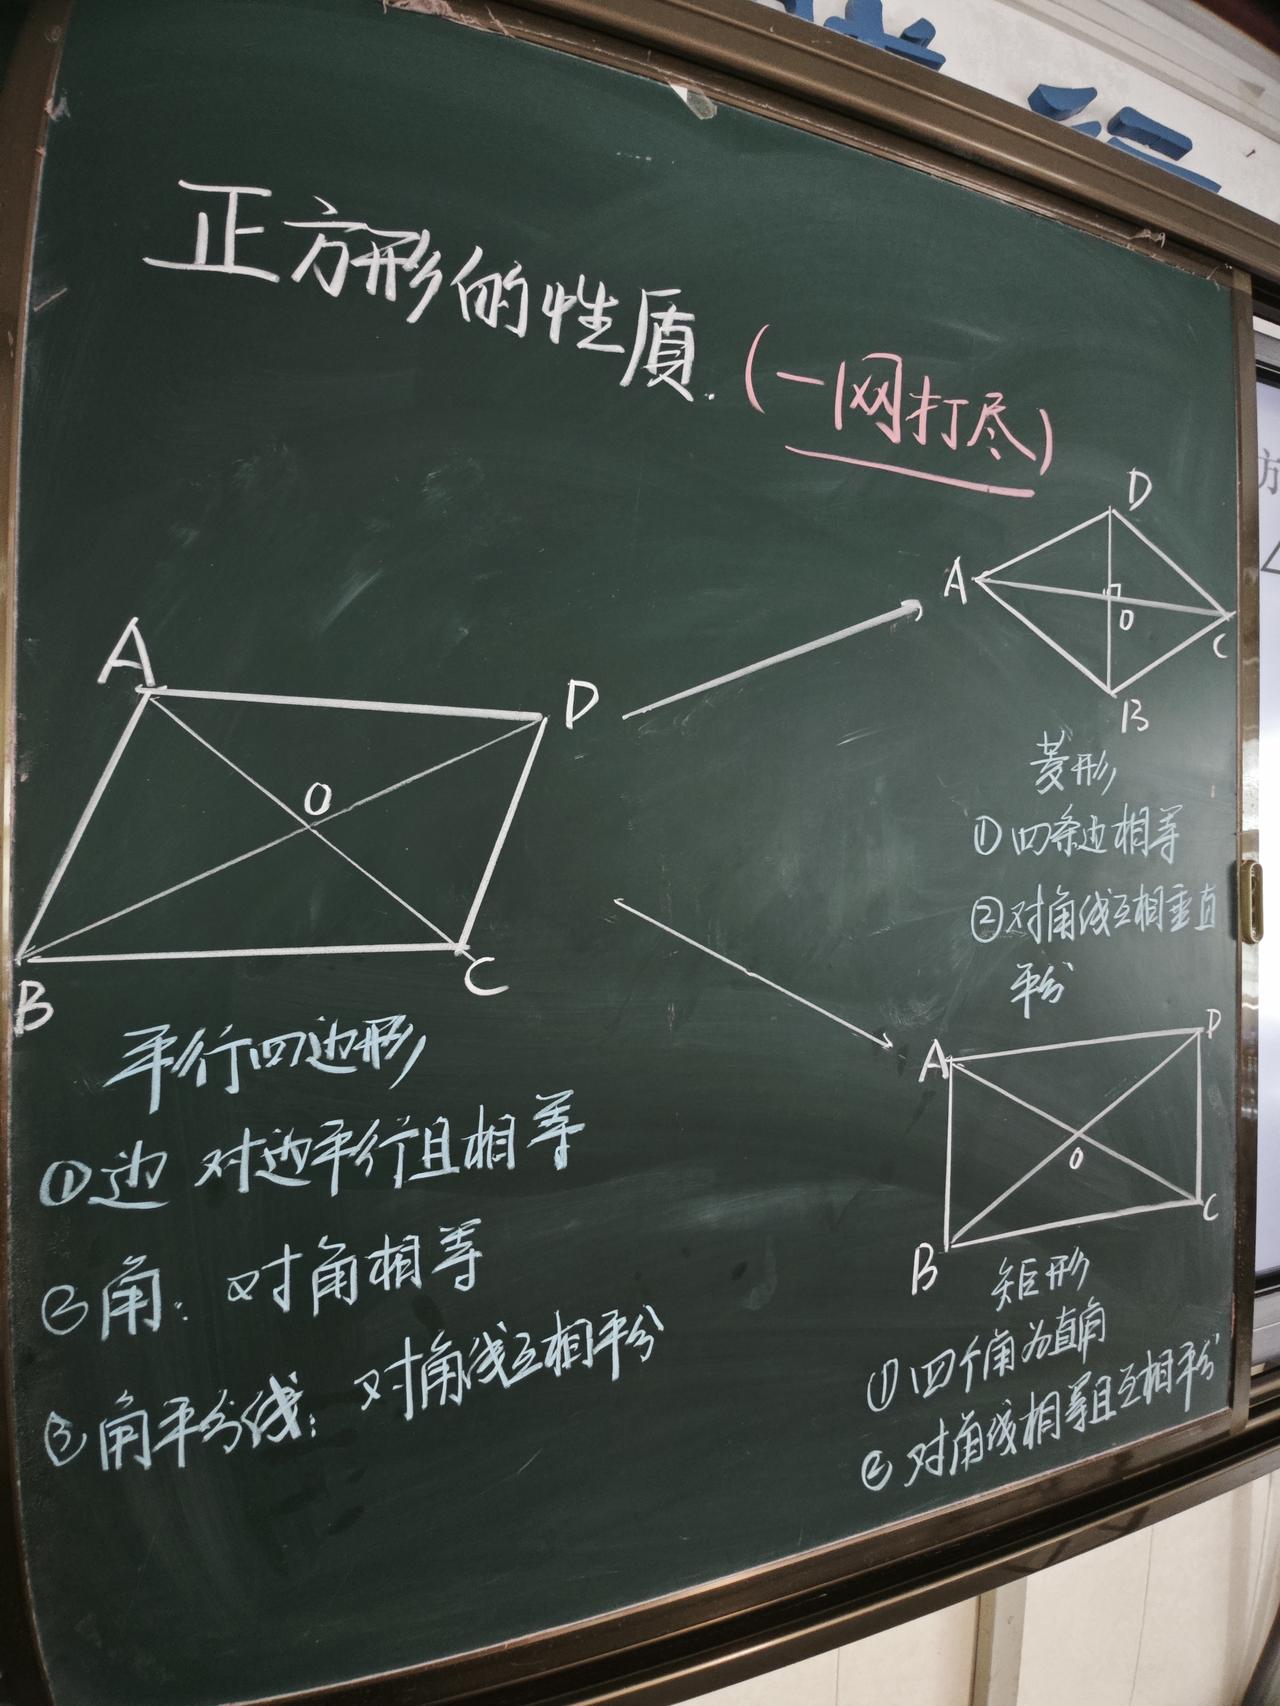 正方形的性质.(一网打尽)
A
D
O
B
C
平行四边形
①边 对边平行且相等
②角: 对角相等
③角平分线: 对角线互相平分
D
A
O
C
B
菱形
①四条边相等
②对角线互相垂直
平分
A
D
O
B
C
矩形
①四个角为直角
②对角线相等且互相平分
方